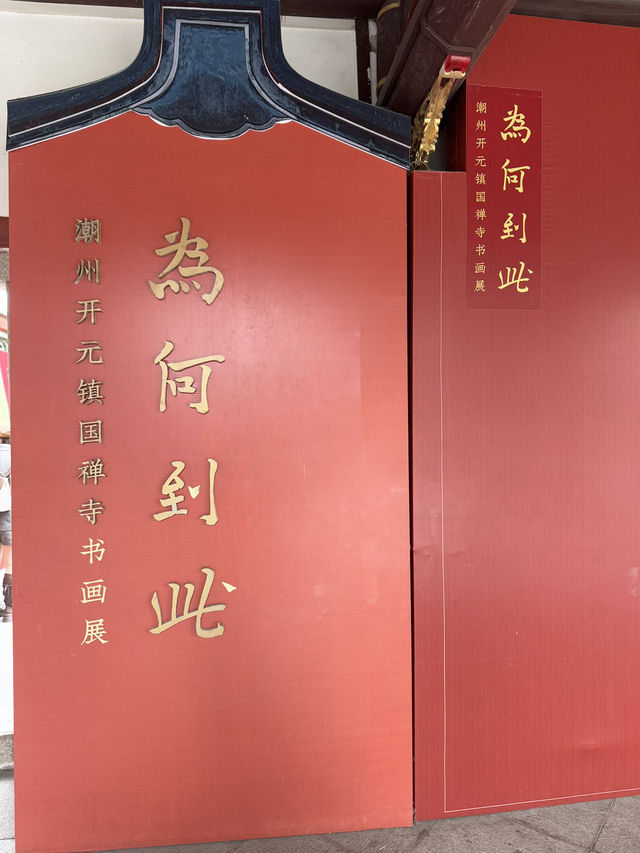 為何到此
潮州开元镇国禅寺书画展
為何到此
潮州开元镇国禅寺书画展